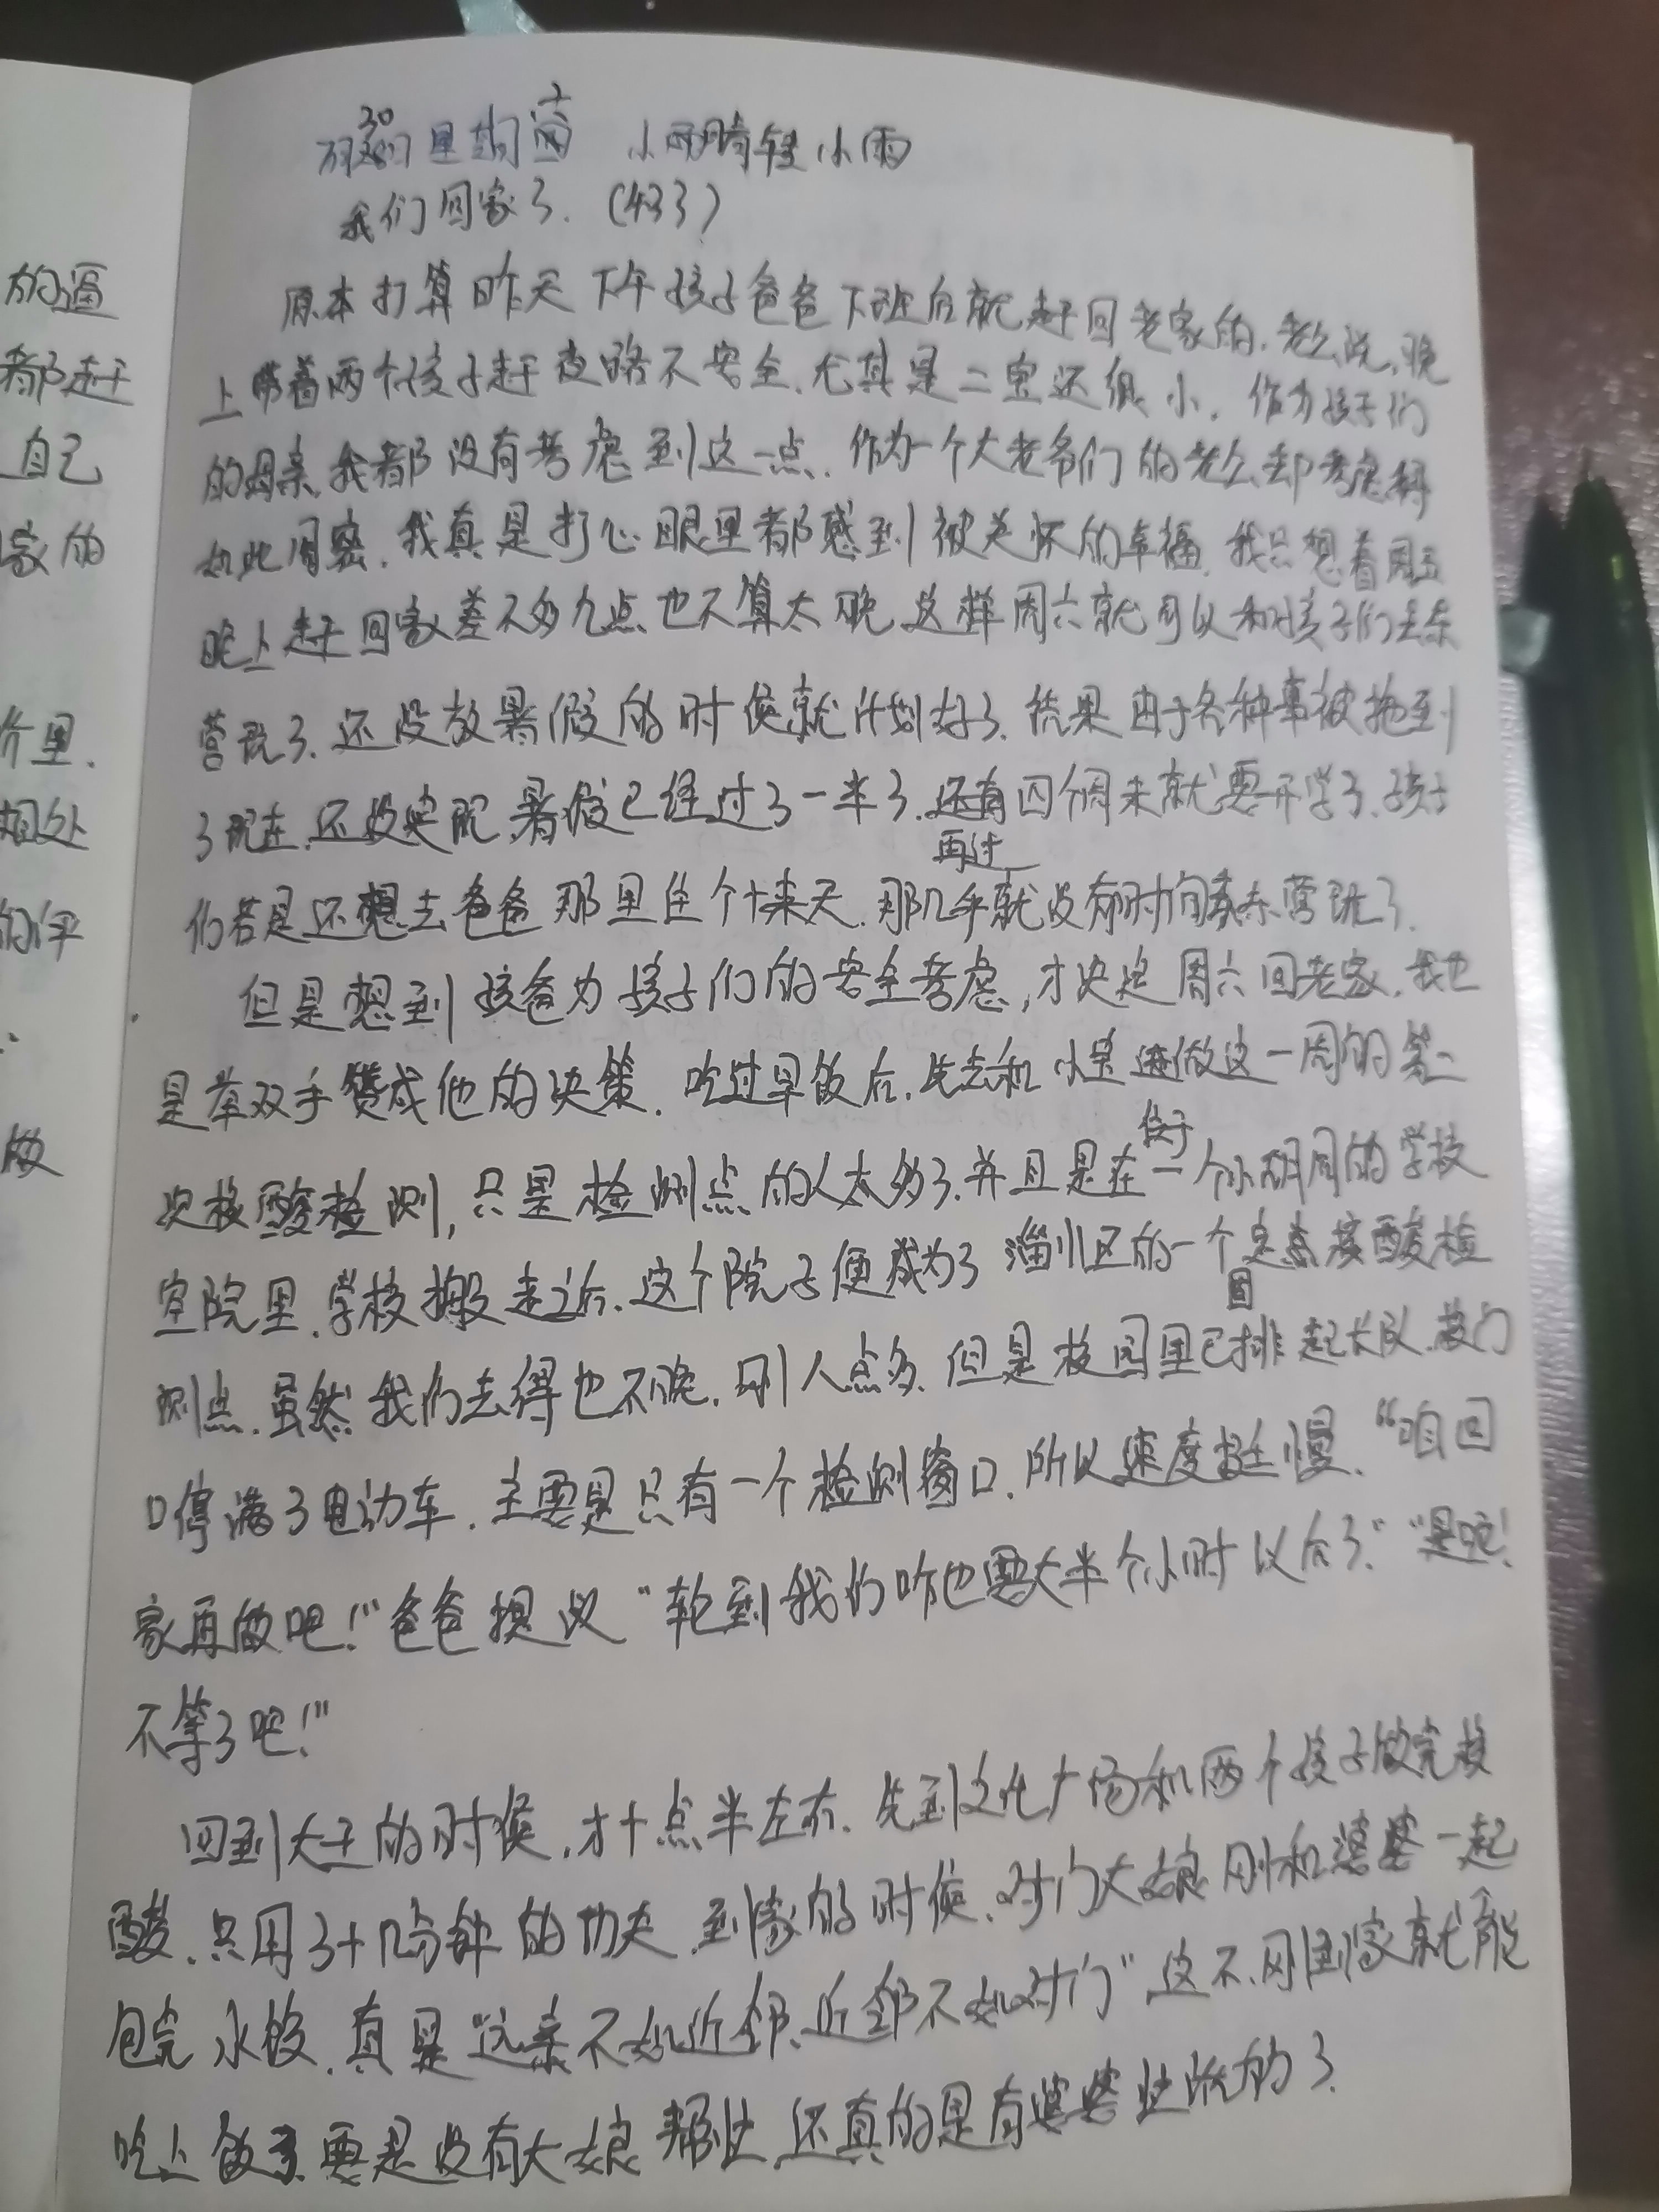 的逼
都赶
自己
家的
价里.
相处
的评
做
30
里的 小雨转小雨
我们回家了.(433)
原本打算昨天下午孩子爸爸下班后就赶回老家的.老公说,晚
上带着两个孩子赶夜路不安全.尤其是二宝还很小.作为孩子们
的母亲,我都没有考虑到这一点.作为一个大老爷们的老公却考虑得
如此周密.我真是打心眼里都感到被关怀的幸福.我只想着周五
晚上赶回家差不多九点也不算太晚,这样周六就可以和孩子们去东
营玩了.还没放暑假的时候就计划好了.结果由于各种事被拖到
了现在.还没实现.暑假已经过了一半了.还有四个周末就要开学了.孩子
再过
们若是还想去爸爸那里住个十来天.那几乎就没有时间去东营玩了.
但是想到孩爸为孩子们的安全考虑,才决定周六回老家.我也
是举双手赞成他的决策.吃过早饭后.先去和小宝做这一周的第二
位于
次核酸检测,只是检测点的人太多了.并且是在一个小胡同的学校
空院里.学校搬走之后.这个院子便成为了淄川区的一个固定点核酸检
测点.虽然我们去得也不晚.刚八点多.但是校园里已排起长队.校门
口停满了电动车.主要是只有一个检测窗口.所以速度挺慢.“咱回
家再做吧!”爸爸提议“轮到我们咋也要大半个小时以后了.”“是呢!
不等了吧!”
回到大王的时候.才十点半左右.先到文化广场和两个孩子做完核
酸.只用了十几分钟的功夫.到家的时候.对门大娘刚和婆婆一起
包完水饺.真是“远亲不如近邻.近邻不如对门”.这不.刚到家就能
吃上饭了.要是没有大娘帮忙.还真的是有婆婆忙活的了.